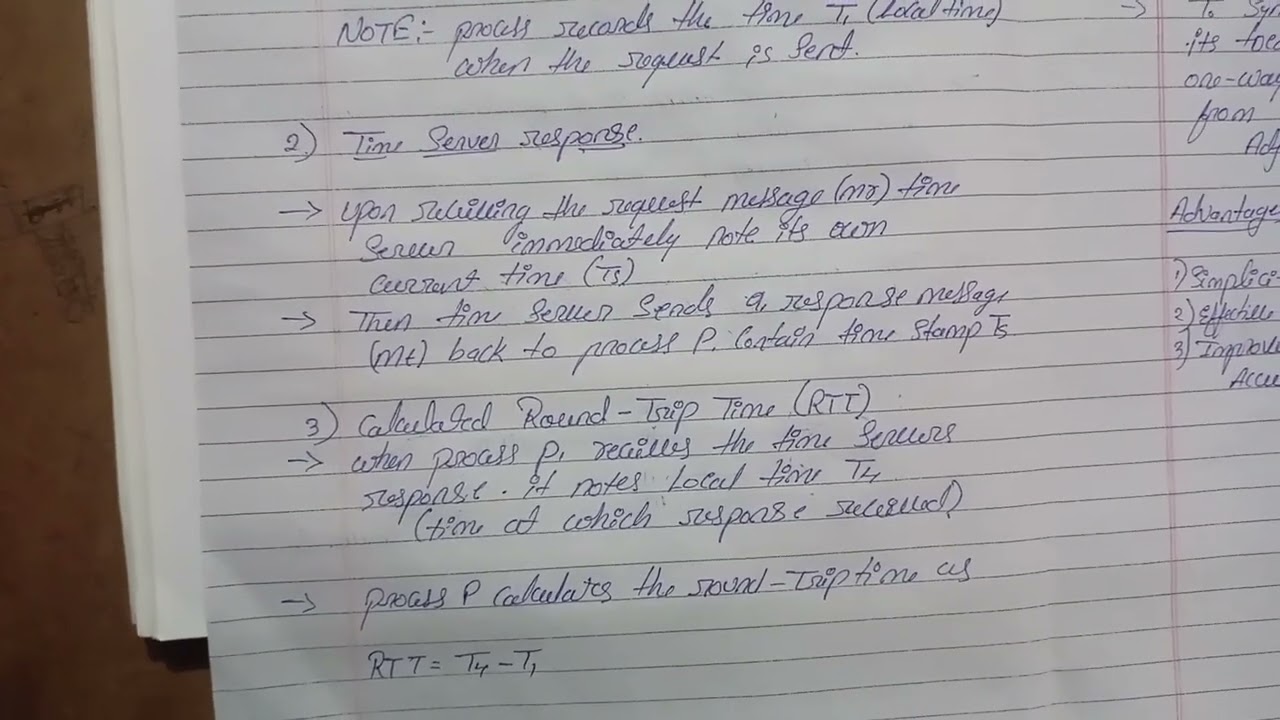 NOTE:- process records the time T1 (Local time)
when the request is sent.
2) Time Server response.
→ Upon receiving the request message (mr) time
Server immediately note its own
current time (Ts)
→ Then time Server Sends a response message
(mt) back to process P. Contain time Stamp Ts
3) Calculated Round-Trip Time (RTT)
→ when process P, receives the time Servers
response. it notes Local time T4
(time at which response received)
→ process P calculates the round-Trip time as
RTT = T4 - T1
→ To Syn
its loc
one-way
from
Adj
Advantage
1) Simplici
2) Effective
3) Improve
Accu